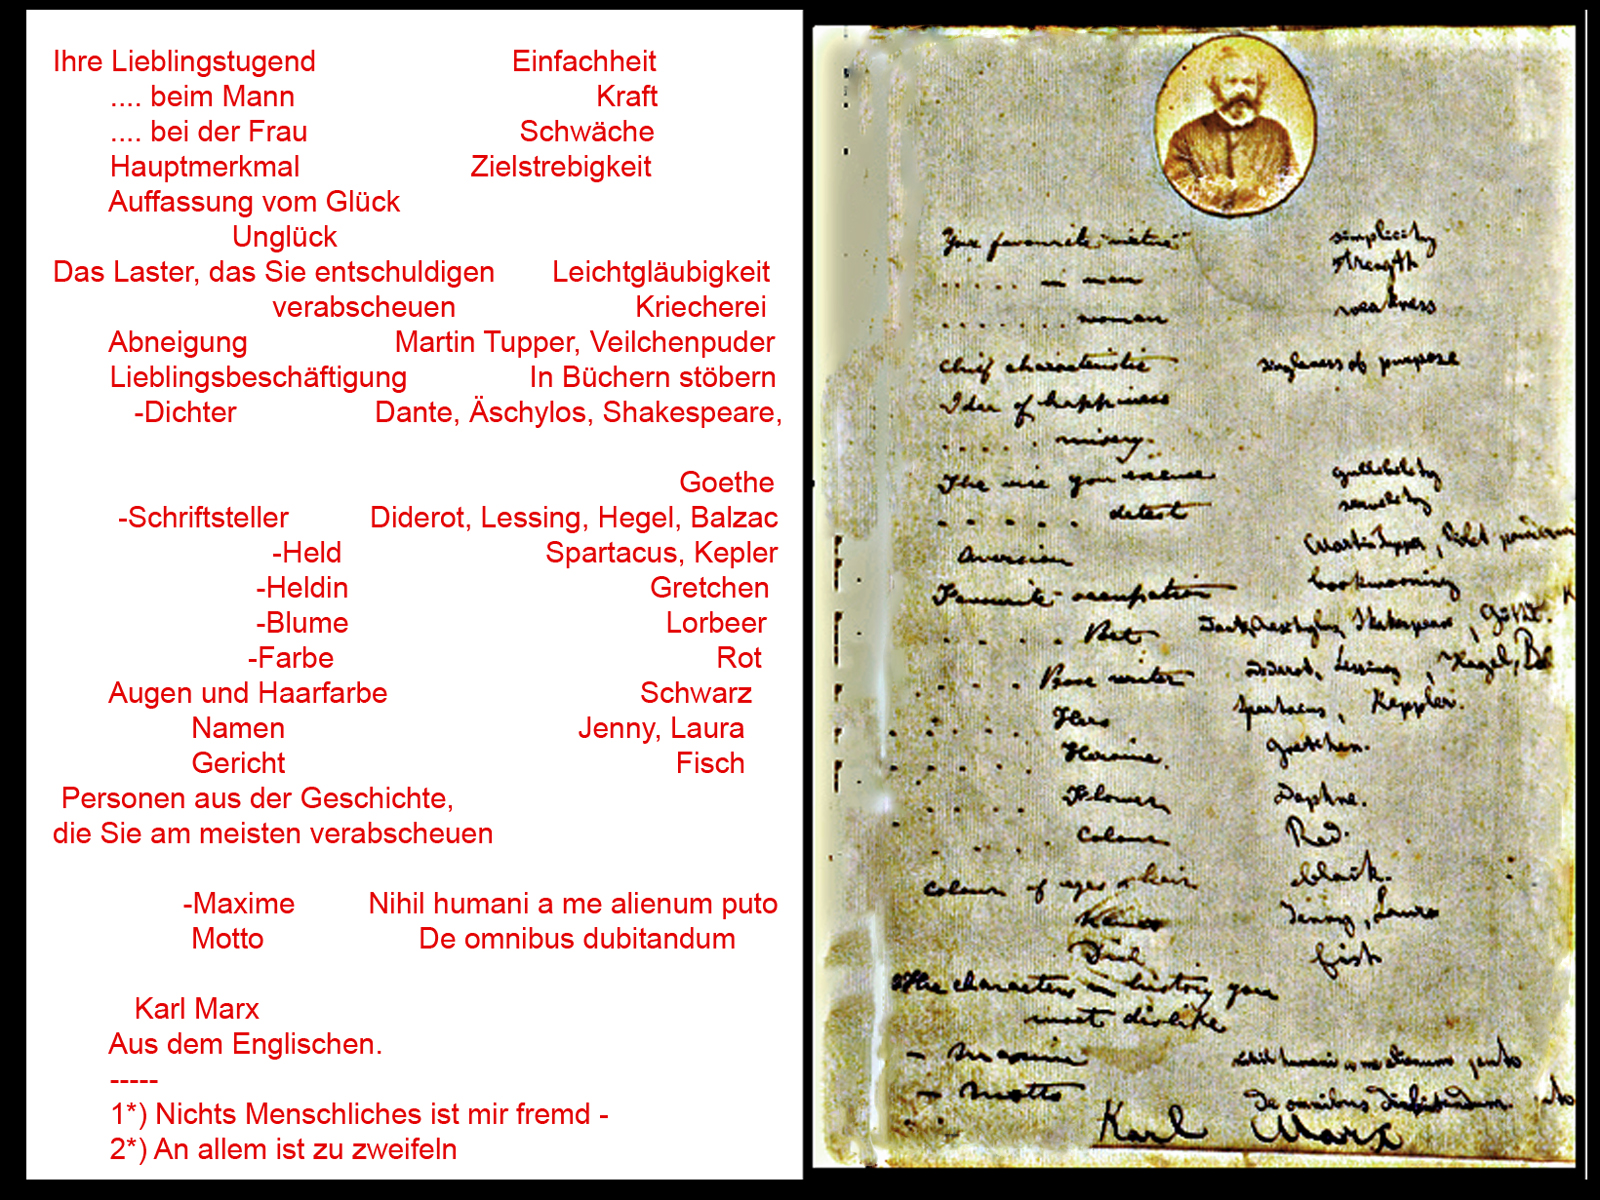 Ihre Lieblingstugend Einfachheit
.... beim Mann Kraft
.... bei der Frau Schwäche
Hauptmerkmal Zielstrebigkeit
Auffassung vom Glück
Unglück
Das Laster, das Sie entschuldigen Leichtgläubigkeit
verabscheuen Kriecherei
Abneigung Martin Tupper, Veilchenpuder
Lieblingsbeschäftigung In Büchern stöbern
-Dichter Dante, Äschylos, Shakespeare,
Goethe
-Schriftsteller Diderot, Lessing, Hegel, Balzac
-Held Spartacus, Kepler
-Heldin Gretchen
-Blume Lorbeer
-Farbe Rot
Augen und Haarfarbe Schwarz
Namen Jenny, Laura
Gericht Fisch
Personen aus der Geschichte,
die Sie am meisten verabscheuen
-Maxime Nihil humani a me alienum puto
Motto De omnibus dubitandum
Karl Marx
Aus dem Englischen.
-----
1*) Nichts Menschliches ist mir fremd -
2*) An allem ist zu zweifeln
Your favourite virtue simplicity
..... in man strength
....... woman weakness
Chief characteristic singleness of purpose
Idea of happiness
..... misery.
The vice you excuse gullibility
...... detest servility
Aversion Martin Tupper, violet
Favourite occupation bookworming
..... Poet Shakespeare, Göthe.
..... Prose writer Diderot, Lessing, Hegel,
..... Hero Spartacus, Keppler.
..... Heroine. Gretchen.
..... Flower Daphne.
..... Colour Red.
Colour of eyes & hair black.
Names Jenny, Laura
Dish fish
The characters in history you
most dislike
- Maxime Nihil humani a me alienum puto
- Motto De omnibus dubitandum.
Karl Marx